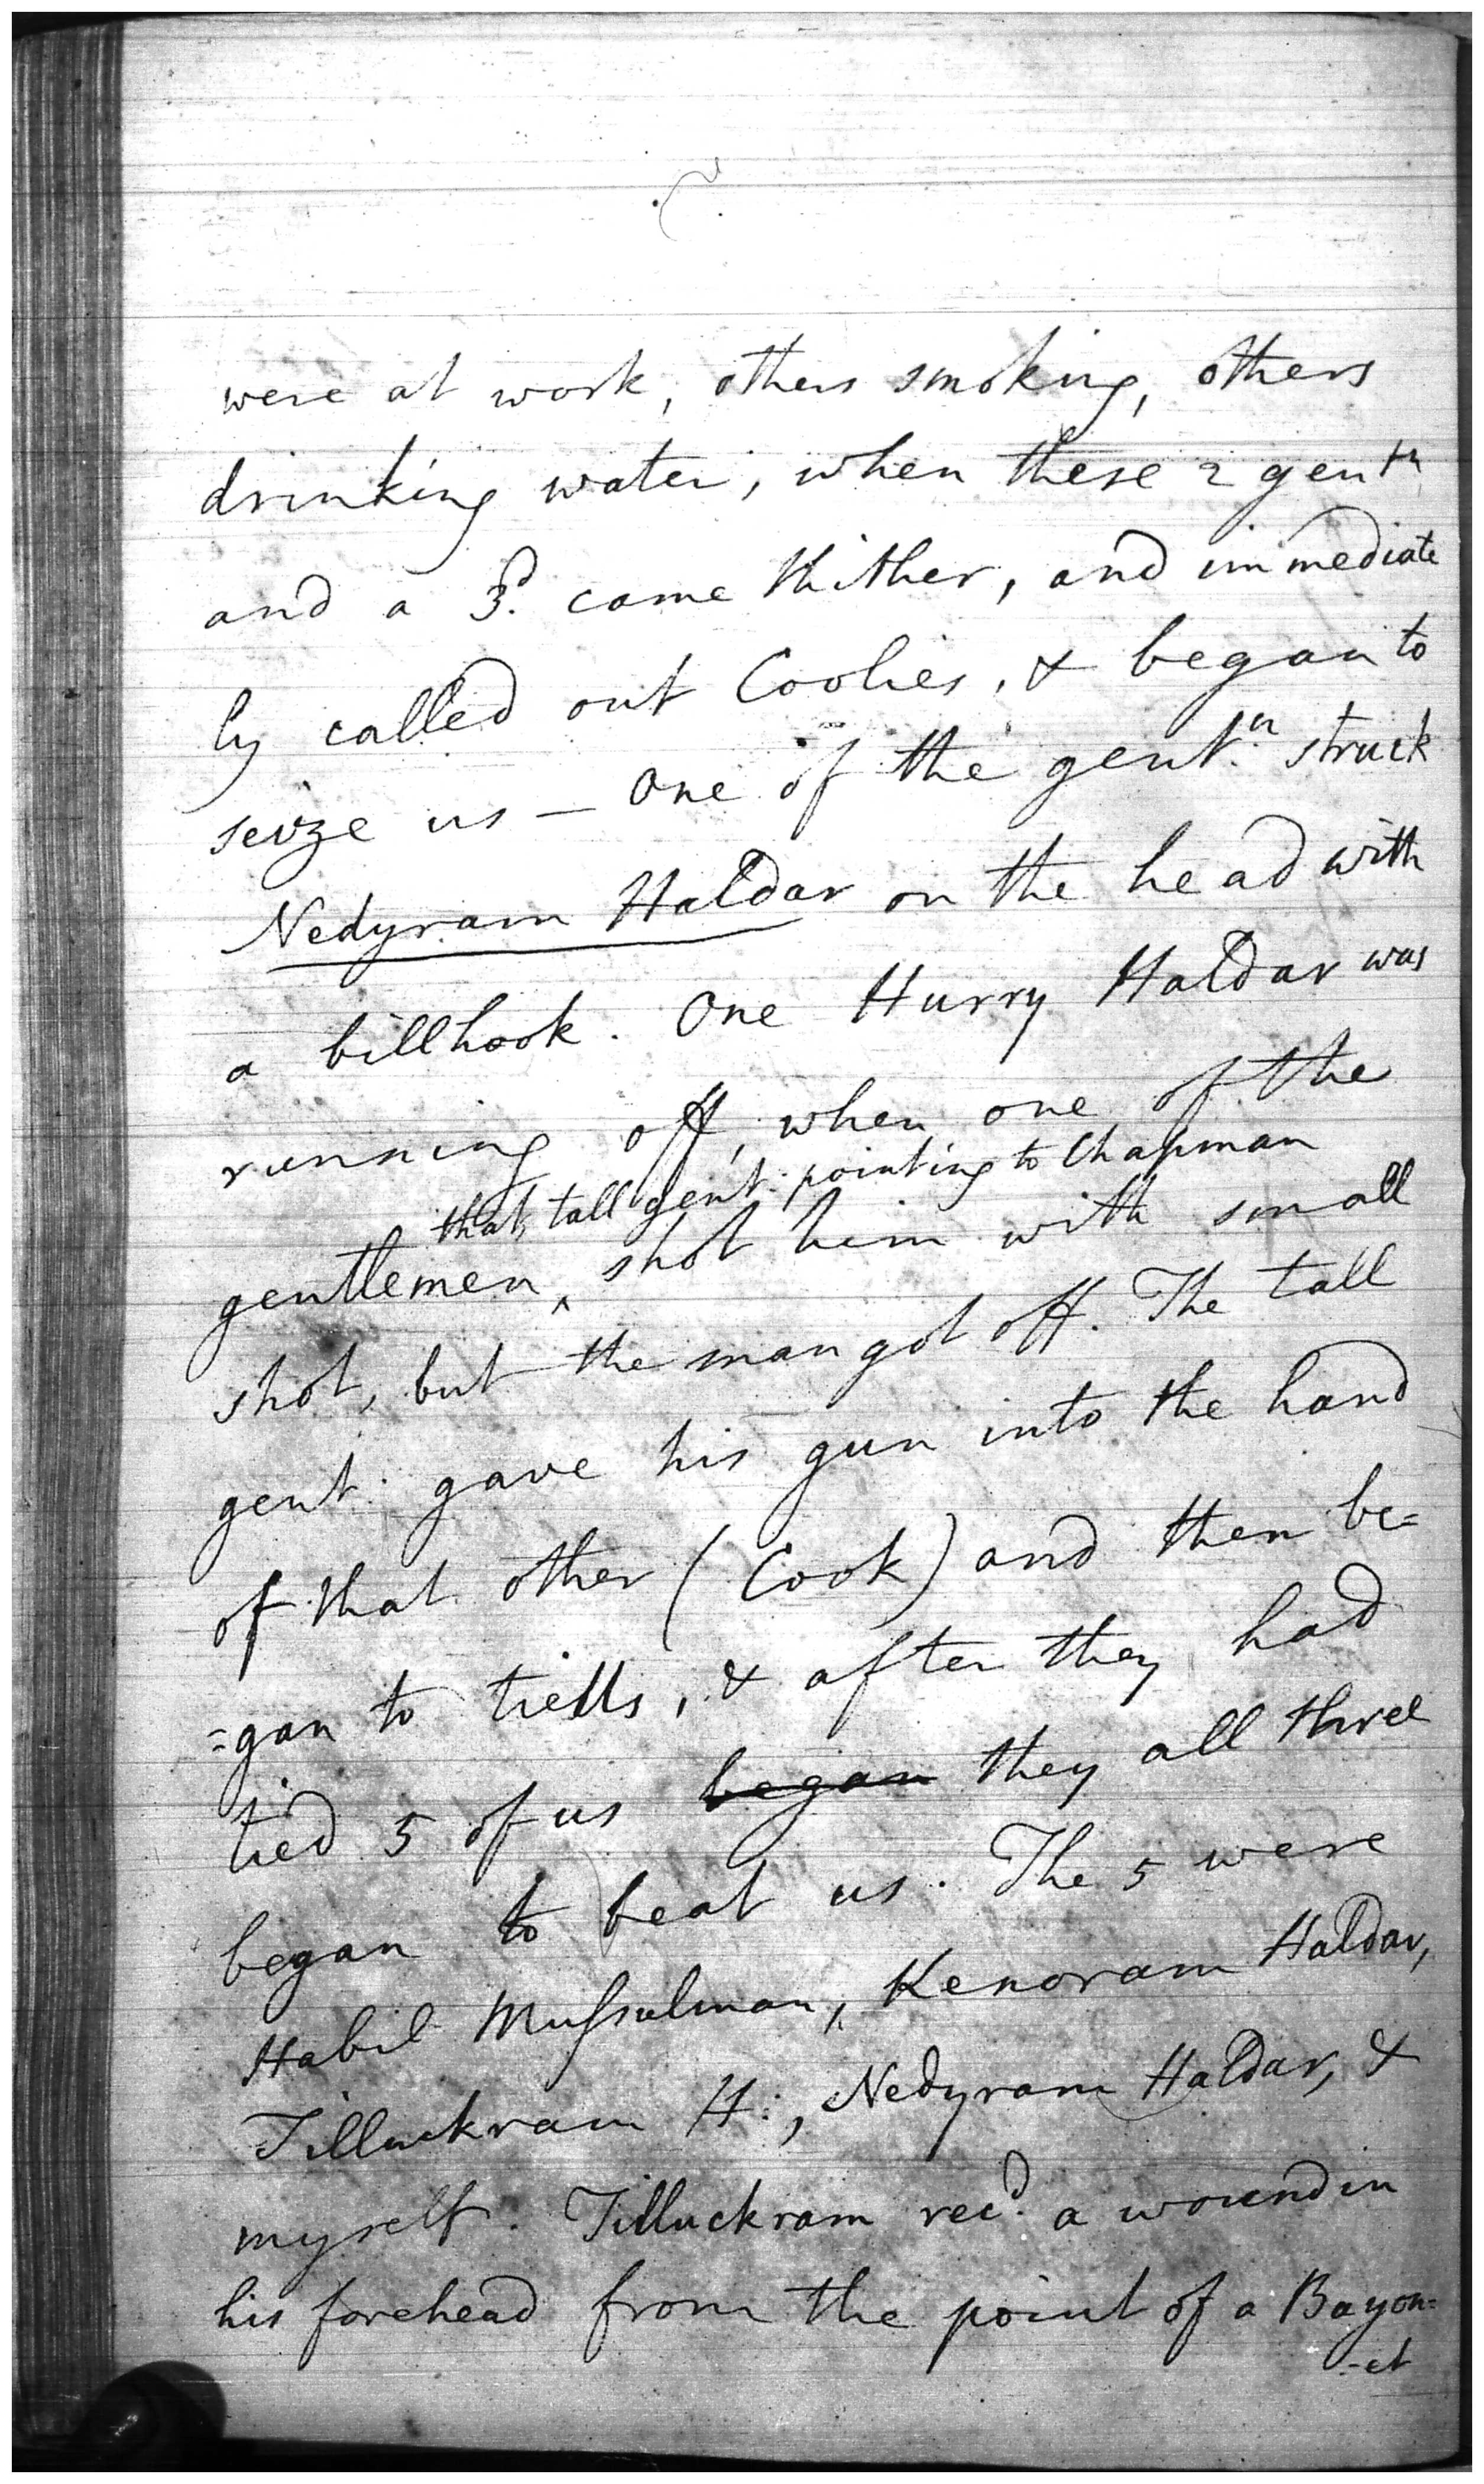 were at work, others smoking, others
drinking water, when these 2 gentn
and a 3d. came thither, and immediate
ly called out Coolies, & began to
seize us — One of the gent.n struck
Nedyram Haldar on the head with
a billhook. One Hurry Haldar was
running off, when one of the
that tall gent. pointing to Chapman
gentlemen ^ shot him with small
shot, but the man got off. The tall
gent. gave his gun into the hand
of that other (Cook) and then be=
=gan to tie us, & after they had
tied 5 of us began they all three
began to beat us. The 5 were
Habil Mussulman, Kenoram Haldar,
Tilluckram H:, Nedyram Haldar, &
myself. Tilluckram recd. a wound in
his forehead from the point of a Bayon=
-et